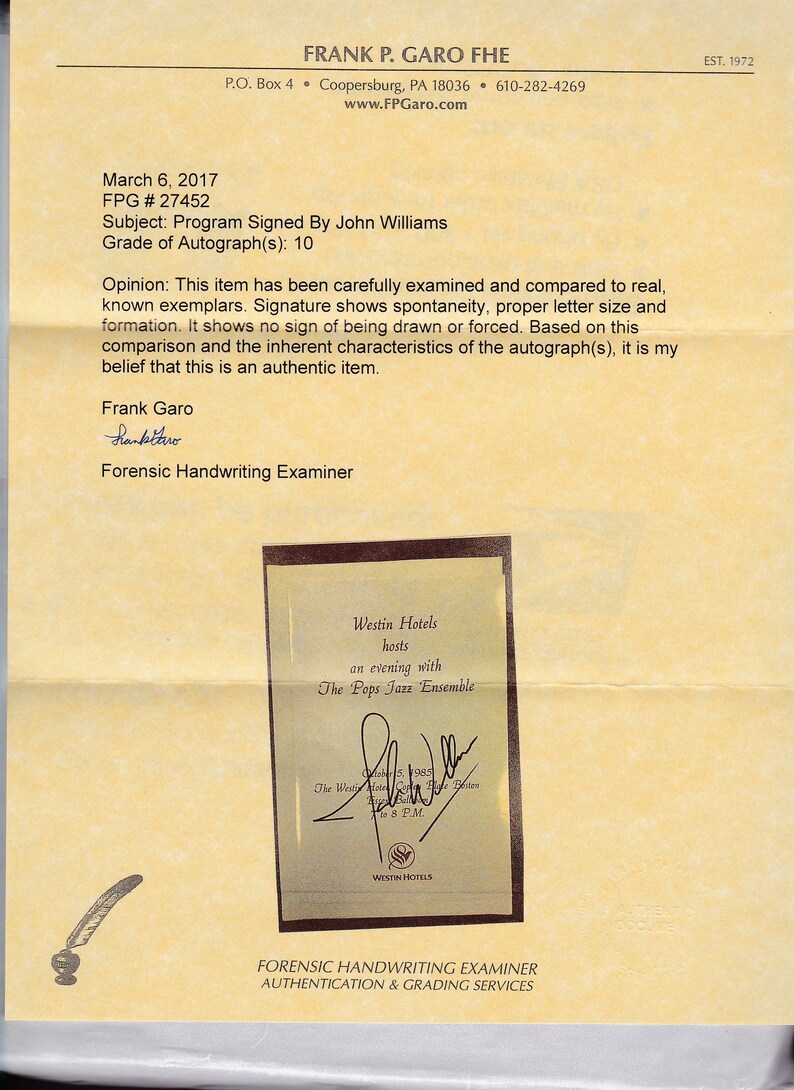 FRANK P. GARO FHE
EST. 1972
P.O. Box 4 • Coopersburg, PA 18036 • 610-282-4269
www.FPGaro.com
March 6, 2017
FPG # 27452
Subject: Program Signed By John Williams
Grade of Autograph(s): 10
Opinion: This item has been carefully examined and compared to real,
known exemplars. Signature shows spontaneity, proper letter size and
formation. It shows no sign of being drawn or forced. Based on this
comparison and the inherent characteristics of the autograph(s), it is my
belief that this is an authentic item.
Frank Garo
Frank Garo
Forensic Handwriting Examiner
Westin Hotels
hosts
an evening with
The Pops Jazz Ensemble
John Williams
October 5, 1985
The Westin Hotel Copley Place Boston
Essex Ballroom
7 to 8 P.M.
WESTIN HOTELS
FORENSIC HANDWRITING EXAMINER
AUTHENTICATION & GRADING SERVICES